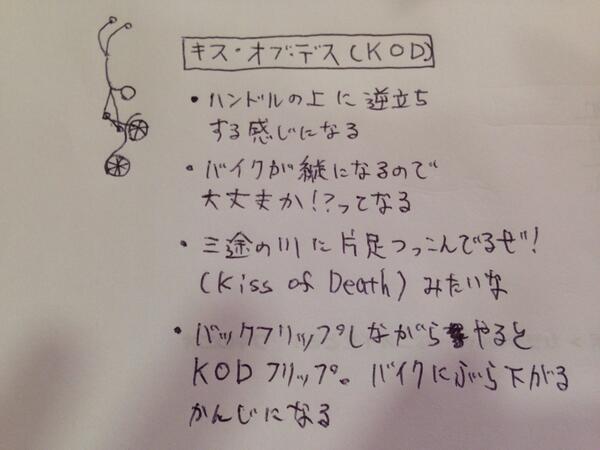 キス・オブ・デス(KOD)
・ハンドルの上に逆立ち
する感じになる
・バイクが縦になるので
大丈夫か!?ってなる
・三途の川に片足つっこんでるぜ!
(Kiss of Death)みたいな
・バックフリップしながらやると
KODフリップ。バイクにぶら下がる
かんじになる